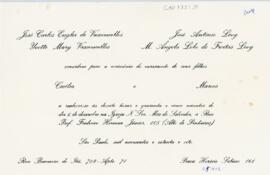 José Carlos Engler de Vasconcellos
Yvette Mary Vasconcellos
José Antonio Levy
M. Angela Lobo de Freitas Levy
convidam para a cerimônia do casamento de seus filhos
Cecília e Marcos
a realizar-se às dezoito horas e quarenta e cinco minutos do
dia 6 de dezembro na Igreja N. Sra. Mãe do Salvador, à Rua
Prof. Frederico Hermann Júnior, 105 (Alto de Pinheiros)
São Paulo, mil novecentos e oitenta e sete
Rua
Apto. 71
Praça Horácio Sabino 162